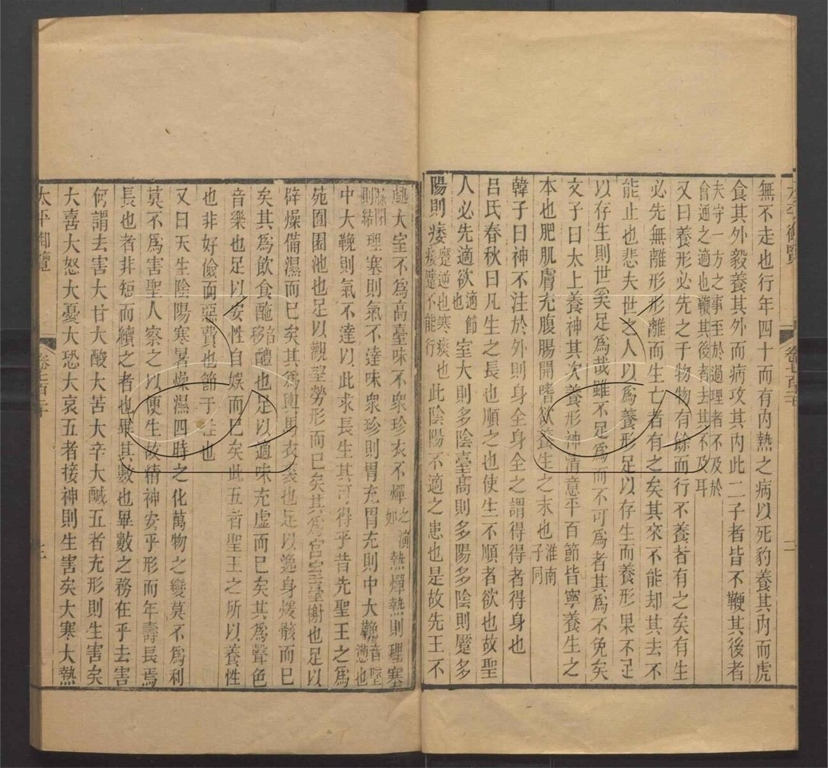 無不走也行年四十而有內熱之病以死豹養其內而虎
食其外毅養其外而病攻其內此二子者皆不鞭其後者
夫守一方之事至於過理者不及於
會通之適也鞭其後者去其不及耳
又曰養形必先之于物物有餘而行不養者有之矣有生
必先無離形形不離而生亡者有之矣其來不能却其去不
能止也悲夫世之人以爲養形足以存生而養形果不足
以存生則世奚足爲哉雖不足爲而不可爲者其爲不免矣
文子曰太上養神其次養形神清意平百節皆寧養生之
本也肥肌膚充腹腸開嗜欲養生之末也
淮南
子同
韓子曰神不注於外則身全身全之謂得得者得身也
呂氏春秋曰凡生之長也順之也使生不順者欲也故聖
人必先適欲
適節
也
室大則多陰臺高則多陽多陰則蹷多
陽則痿
蹷逆也寒疾也
痿躄不能行
此陰陽不適之患也是故先王不
處大室不爲高臺味不衆珍衣不燀
熱燀熱則理塞
理塞則氣不達味衆珍則胃充胃充則中大鞔
中大鞔則氣不達以此求長生其可得乎昔先聖王之爲
苑囿園池也足以觀望勞形而已矣其爲宮室臺榭也足以
辟燥備濕而已矣其爲輿馬衣裘也足以逸身煖骸而已
矣其爲飲食酏醴也足以適味充虛而已矣其爲聲色
音樂也足以安性自娛而已矣此五者聖王之所以養性
也非好儉而惡費也節于性也
又曰天生陰陽寒暑燥濕四時之化萬物之變莫不爲利
莫不爲害聖人察之以便生故精神安乎形而年壽長焉
長也者非短而續之者也畢其數也畢數之務在乎去害
何謂去害大甘大酸大苦大辛大鹹五者充形則生害矣
大喜大怒大憂大恐大哀五者接神則生害矣大寒大熱
太平御覽 卷七百二十